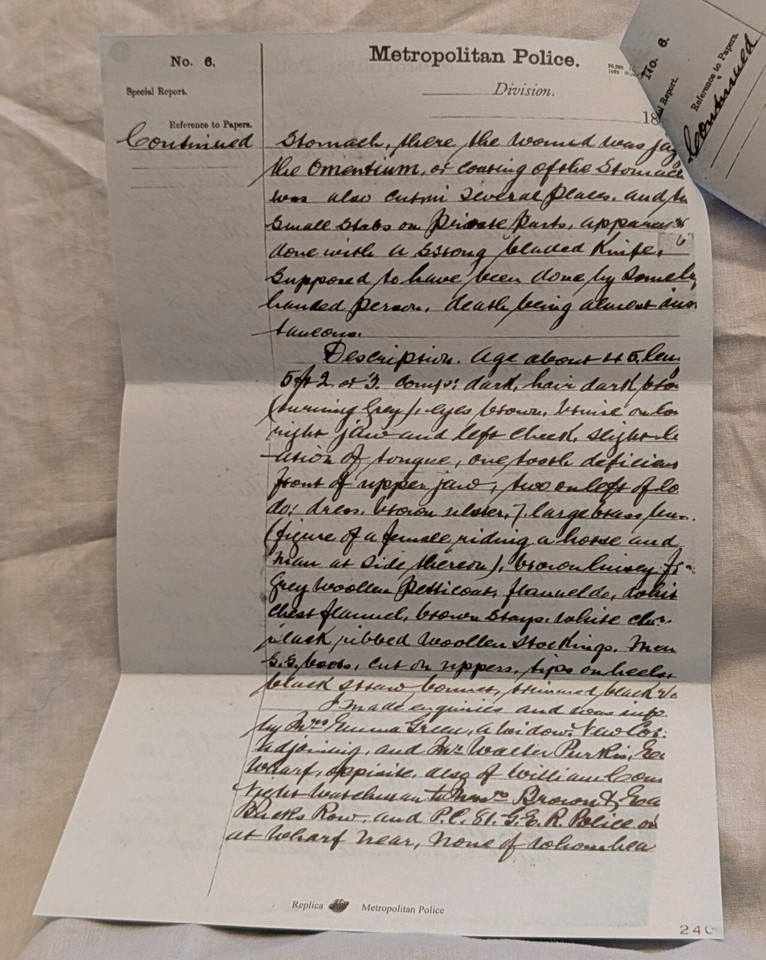 No. 6.
Special Report.
Reference to Papers.
Continued
Metropolitan Police.
Division.
18
Stomach, there the wound was jag
the Omentium, or coating of the Stomach
was also cut in several places, and tw
Small Stabs on private parts, appare
done with a strong bladed Knife,
Supposed to have been done by some le
handed person, death being almost ins
taneous.
Description. Age about 45. len
5ft 2. or 3. comp: dark, hair dark bro
(turning Grey), eyes brown, bruise on lo
right jaw and left cheek, slight la
ation of tongue, one tooth deficien
front of upper jaw, two on left of lo
do; dress, brown ulster, 7 large brass but
(figure of a female riding a horse and
man at side thereon), brown linsey fr
Grey Woollen Petticoat, flannel do, white
chest flannel, brown stays, white che
black ribbed Woollen Stockings, Men
S.S. boots, cut on uppers, tips on heels
black straw bonnet, trimmed black ve
I made enquiries and was info
by Mrs Emma Green, a widow, New Cot
adjoining, and Mr Walter Purkis, Es
Wharf, opposite, also of William Cou
Night Watchman to Messrs Brown & Ea
Bucks Row, and P.C. 81. G.E.R. Police on
at Wharf near, none of whom hea
Replica Metropolitan Police
240
No. 6.
al Report.
Reference to Papers.
Continued